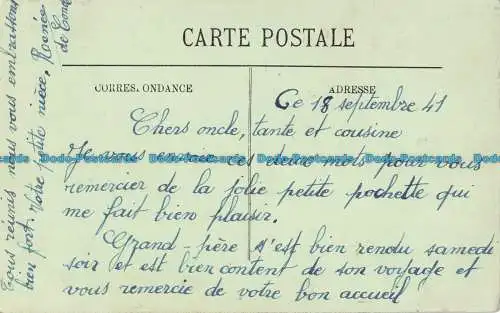 CARTE POSTALE
CORRES. ONDANCE
ADRESSE
Ce 18 septembre 41
Chers oncle, tante et cousine
Je vous envoie ces deux mots pour vous
remercier de la jolie petite pochette qui
me fait bien plaisir.
Grand-père s'est bien rendu samedi
soir et est bien content de son voyage et
vous remercie de votre bon accueil
Tous réunis nous vous embrassons
bien fort. Votre petite nièce,
de
Dodo-Postcards Dodo-Postcards Dodo-Postcards Dodo-Postcards Dodo-Postcards